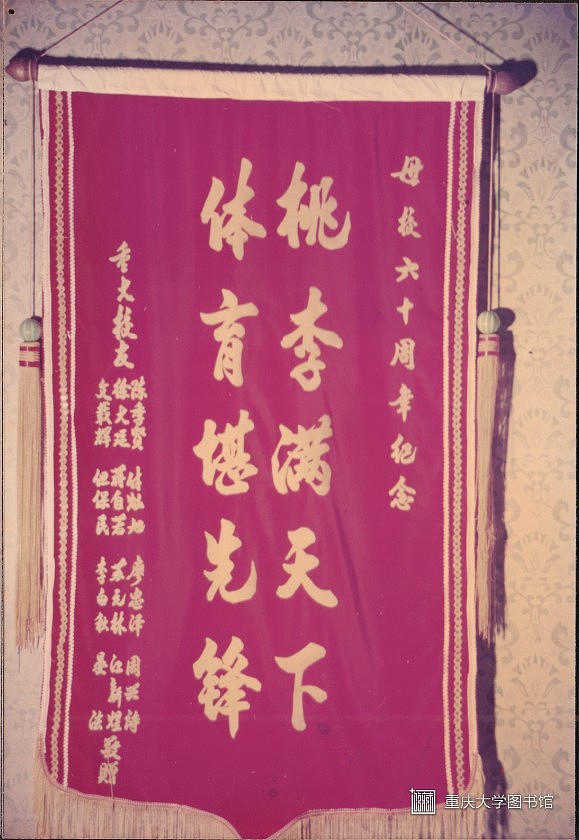 母校六十周年纪念
桃李满天下
体育堪先锋
重大校友
陈季贤 廖忠泽 周兴诗
徐大廷 蒋自若 苏元林 江新煜
文载辉 伍保民 李白秋
敬赠
重庆大学图书馆